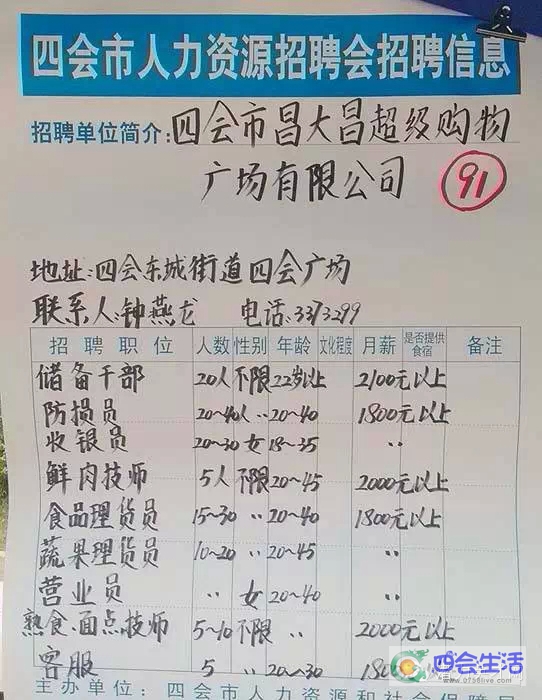 四会市人力资源招聘会招聘信息
招聘单位简介:四会市昌大昌超级购物
广场有限公司 91
地址:四会东城街道四会广场
联系人:钟燕龙 电话:3373299
招聘职位 人数 性别 年龄 文化程度 月薪 是否提供食宿 备注
储备干部 20人 不限 22岁以上 2100元以上
防损员 20~40人 〃 20~40 1800元以上
收银员 20~30 女 18~35 〃
鲜肉技师 5人 不限 20~45 2000元以上
食品理货员 15~30 〃 20~40 1800元以上
蔬果理货员 10~20 〃 20~45 〃
营业员 〃 女 20~40 〃
熟食.面点技师 5~10 不限 〃 2000元以上
客服 5 〃 20~30 180
四会生活
www.0758live.com
主办单位:四会市人力资源和社会保障局